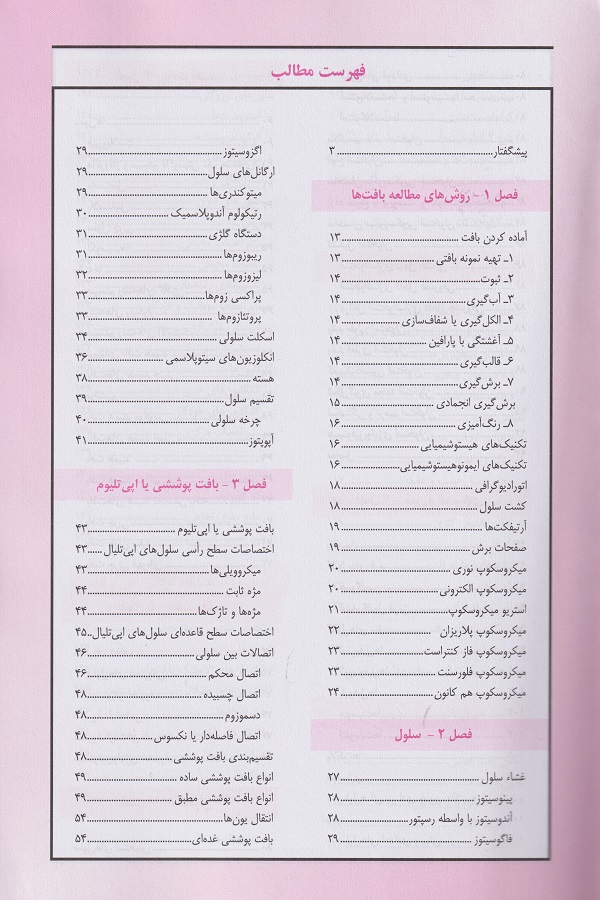 فهرست مطالب
پیشگفتار ۳
فصل ۱ - روش‌های مطالعه بافت‌ها
آماده کردن بافت ۱۳
۱ـ تهیه نمونه بافتی ۱۳
۲ـ ثبوت ۱۴
۳ـ آب‌گیری ۱۴
۴ـ الکل‌گیری یا شفاف‌سازی ۱۴
۵ـ آغشتگی با پارافین ۱۴
۶ـ قالب‌گیری ۱۴
۷ـ برش‌گیری ۱۴
برش‌گیری انجمادی ۱۵
۸ـ رنگ‌آمیزی ۱۶
تکنیک‌های هیستوشیمیایی ۱۶
تکنیک‌های ایمونوهیستوشیمیایی ۱۶
اتورادیوگرافی ۱۸
کشت سلول ۱۸
آرتیفکت‌ها ۱۹
صفحات برش ۱۹
میکروسکوپ نوری ۲۰
میکروسکوپ الکترونی ۲۰
استریو میکروسکوپ ۲۱
میکروسکوپ پلاریزان ۲۲
میکروسکوپ فاز کنتراست ۲۳
میکروسکوپ فلورسنت ۲۳
میکروسکوپ هم کانون ۲۴
فصل ۲ - سلول
غشاء سلول ۲۷
پینوسیتوز ۲۸
آندوسیتوز با واسطه رسپتور ۲۸
فاگوسیتوز ۲۹
اگزوسیتوز ۲۹
ارگانل‌های سلول ۲۹
میتوکندری‌ها ۲۹
رتیکولوم آندوپلاسمیک ۳۰
دستگاه گلژی ۳۱
ریبوزوم‌ها ۳۱
لیزوزوم‌ها ۳۲
پراکسی زوم‌ها ۳۳
پروتئازوم‌ها ۳۳
اسکلت سلولی ۳۴
انکلوزیون‌های سیتوپلاسمی ۳۶
هسته ۳۸
تقسیم سلول ۳۹
چرخه سلولی ۴۰
آپوپتوز ۴۱
فصل ۳ - بافت پوششی یا اپی‌تلیوم
بافت پوششی یا اپی‌تلیوم ۴۳
اختصاصات سطح رأسی سلول‌های اپی‌تلیال ۴۳
میکروویلی‌ها ۴۳
مژه ثابت ۴۴
مژه‌ها و تاژک‌ها ۴۴
اختصاصات سطح قاعده‌ای سلول‌های اپی‌تلیال ۴۵
اتصالات بین سلولی ۴۶
اتصال محکم ۴۶
اتصال چسبیده ۴۸
دسموزوم ۴۸
اتصال فاصله‌دار یا نکسوس ۴۸
تقسیم‌بندی بافت پوششی ۴۸
انواع بافت پوششی ساده ۴۹
انواع بافت پوششی مطبق ۴۹
انتقال یون‌ها ۵۴
بافت پوششی غده‌ای ۵۴